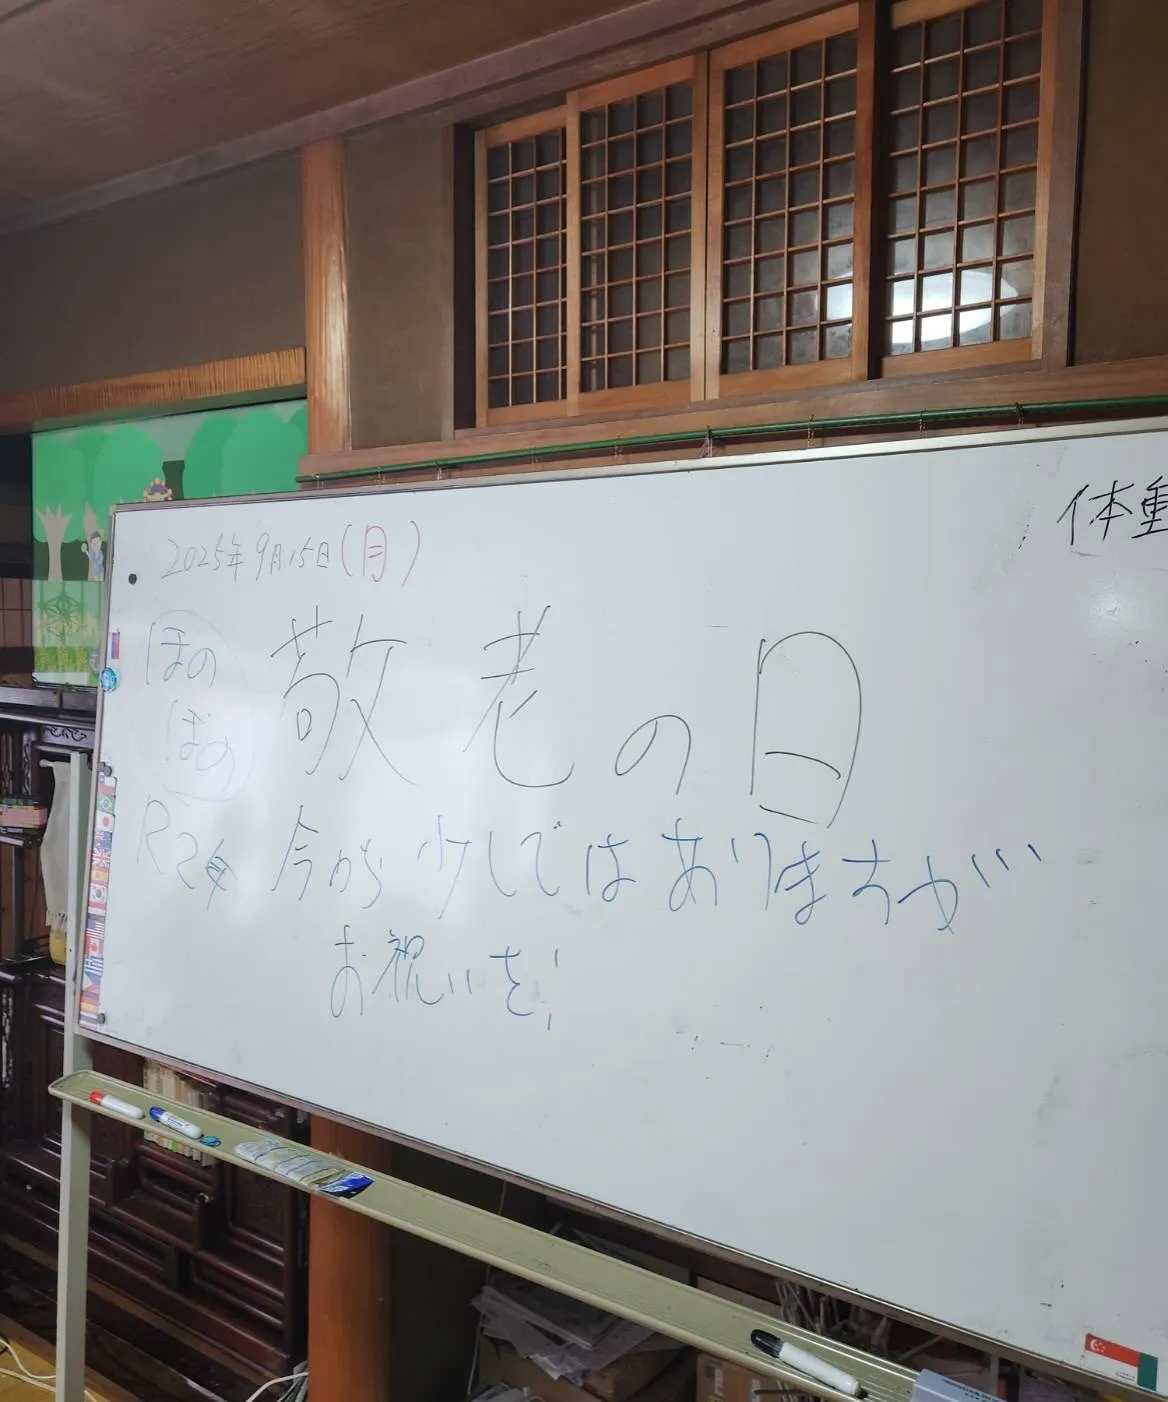 2025年9月15日(月)
体重
ほの
ぼの
敬老の日
R2年
今から少しではありますが…
お祝いを!